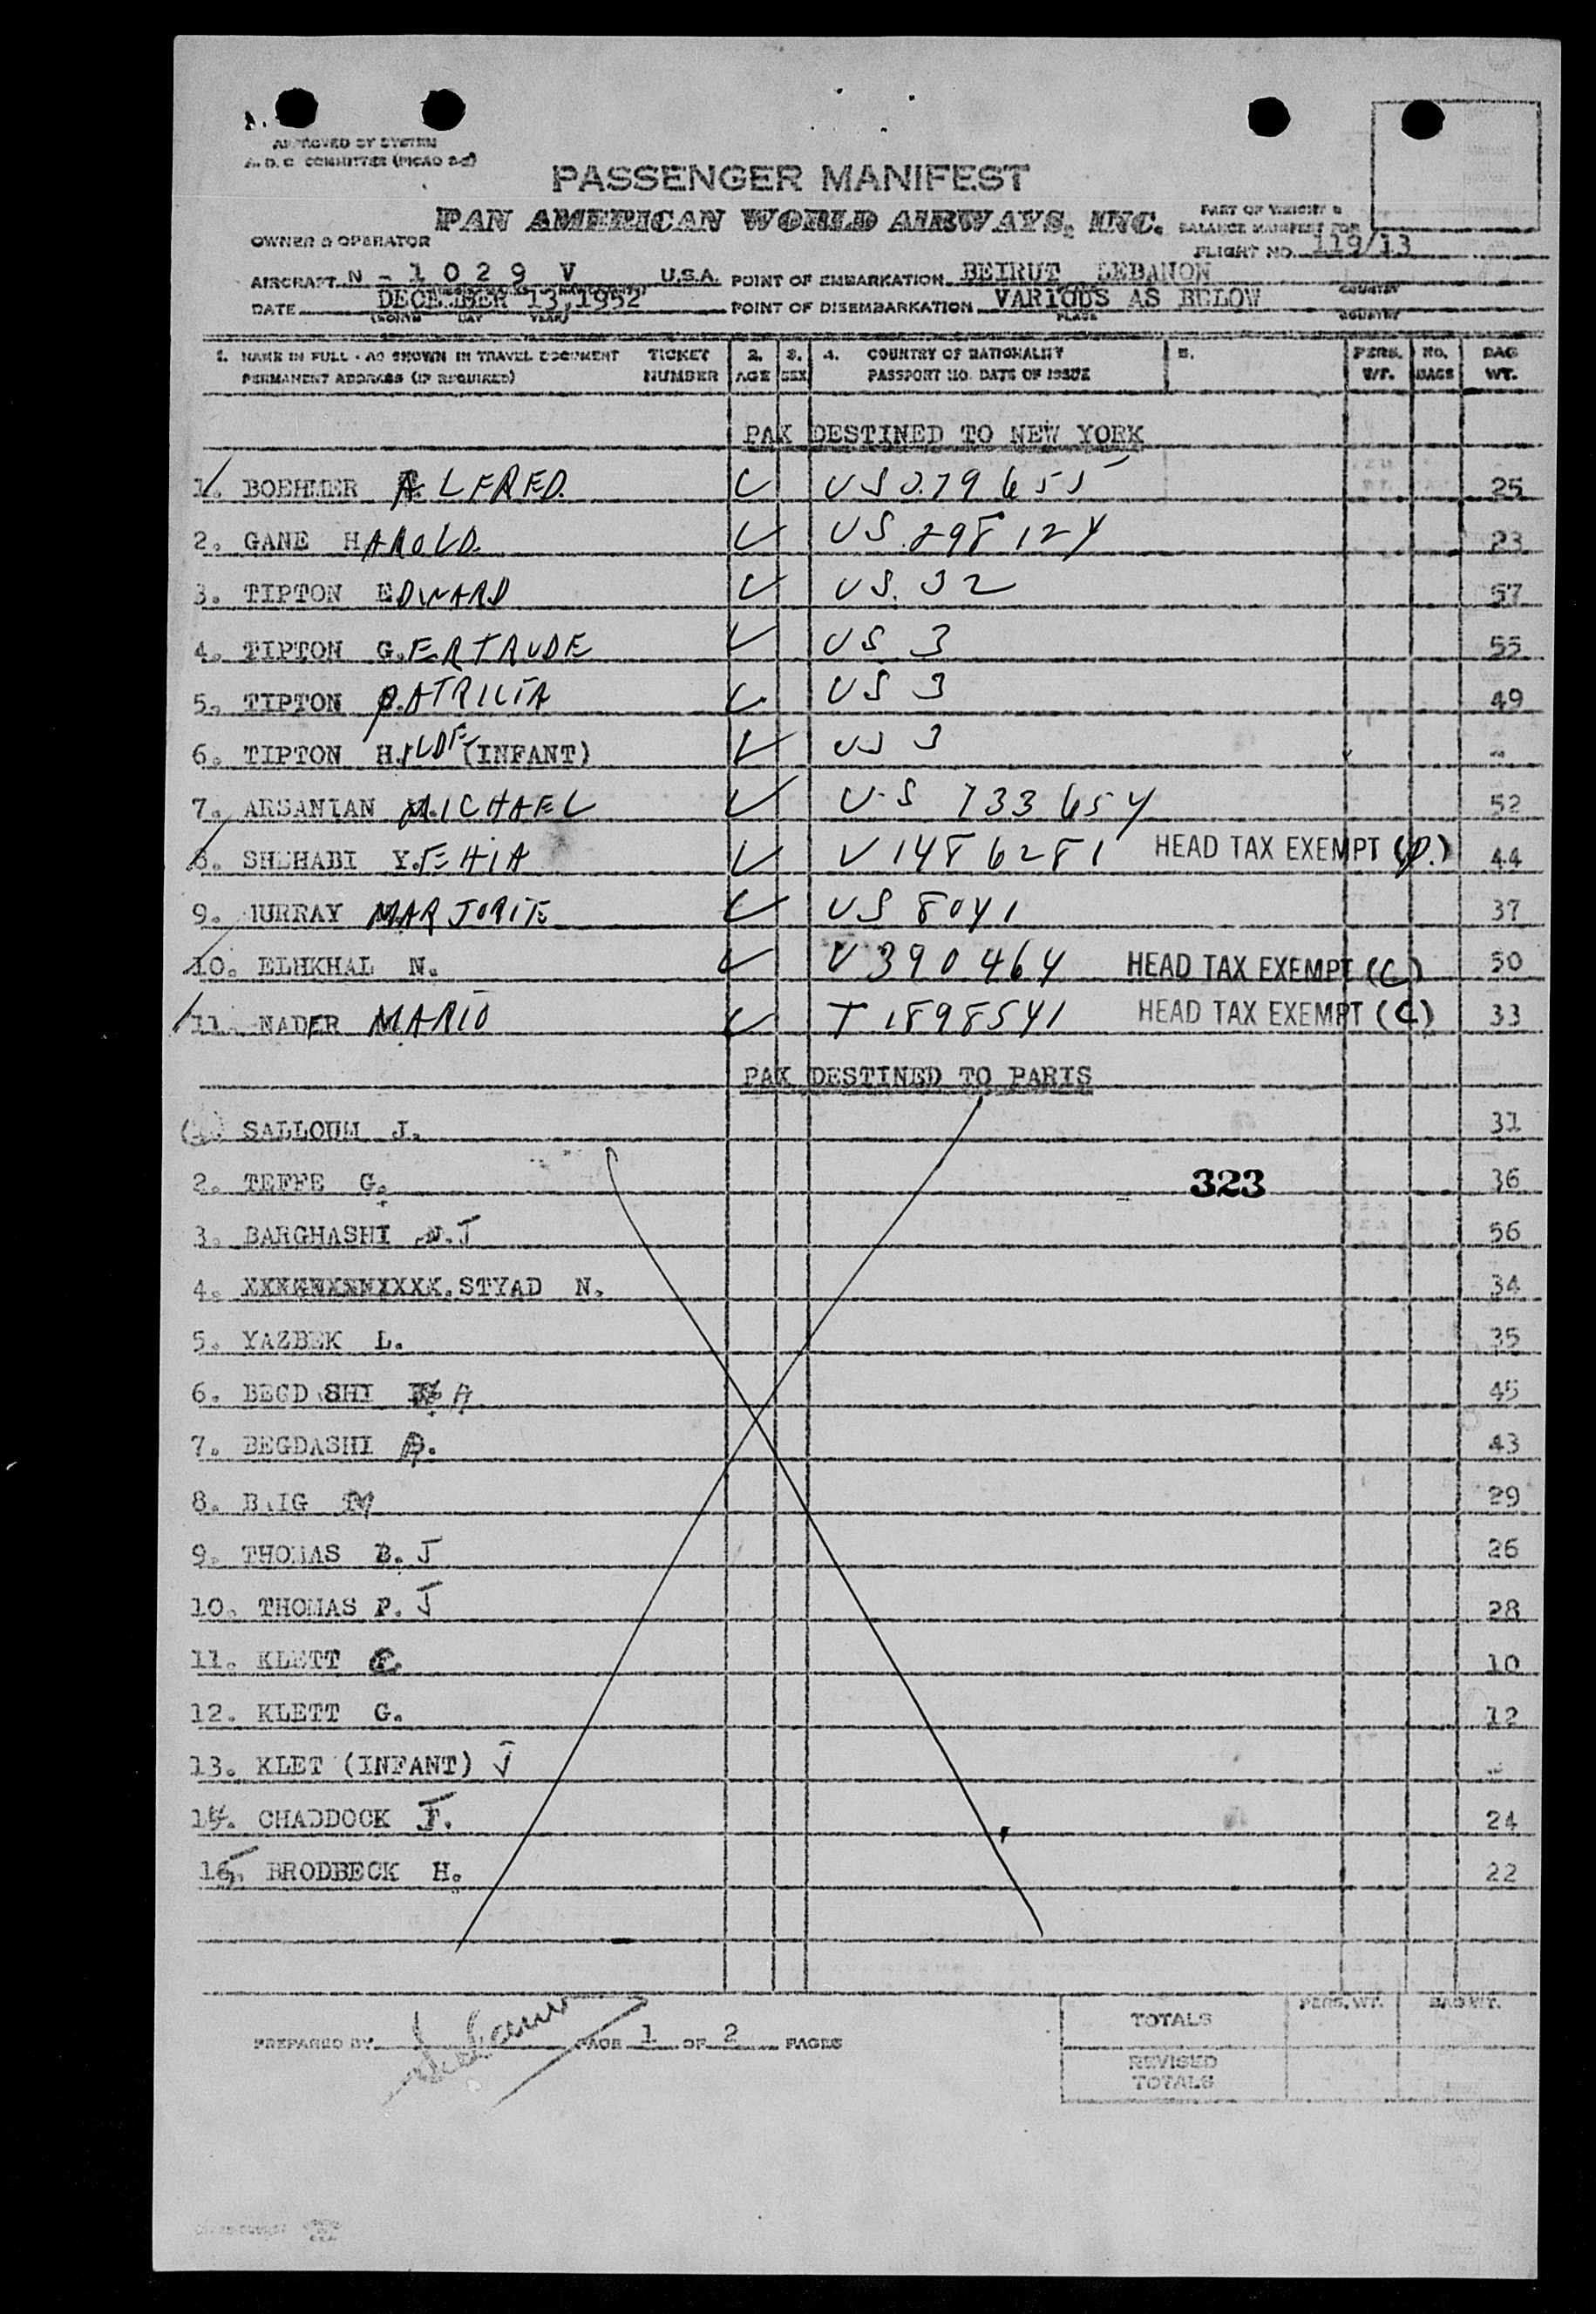 APPROVED BY SYSTEM
A. D. C. COMMITTEE (PICAO 2-2)
PASSENGER MANIFEST
PAN AMERICAN WORLD AIRWAYS, INC.
PART OF WEIGHT &
BALANCE MANIFEST FOR
OWNER & OPERATOR
FLIGHT NO. 119/13
AIRCRAFT N - 1 0 2 9 V U.S.A. POINT OF EMBARKATION BEIRUT LEBANON
COUNTRY
DATE DECEMBER 13,1952 POINT OF DISEMBARKATION VARIOUS AS BELOW
(MONTH DAY YEAR) PLACE COUNTRY
1. NAME IN FULL - AS SHOWN IN TRAVEL DOCUMENT TICKET 2. 3. 4. COUNTRY OF NATIONALITY 5. PERS. NO. BAG
PERMANENT ADDRESS (IF REQUIRED) NUMBER AGE SEX PASSPORT NO. DATE OF ISSUE WT. BAGS WT.
PAX DESTINED TO NEW YORK
1. BOEHMER ALFRED. US 279655 25
2. GANE HAROLD. US 298124 23
3. TIPTON EDWARD US. 32 57
4. TIPTON GERTRUDE US 3 55
5. TIPTON PATRICIA US 3 49
6. TIPTON HILDE (INFANT) US 3 -
7. ARSANIAN MICHAEL US 133654 52
8. SHEHABI YEHIA V 1486281 HEAD TAX EXEMPT (P.) 44
9. MURRAY MARJORIE US 8041 37
10. ELHKHAL N. V 390464 HEAD TAX EXEMPT (C) 50
11. NADER MARIO T 1898541 HEAD TAX EXEMPT (C) 33
PAX DESTINED TO PARIS
SALLOUM J. 31
2. TEFFE G. 36
323
3. BARGHASHI J 56
4. STYAD N. 34
5. YAZBEK L. 35
6. BEGDASHI A 45
7. BEGDASHI 43
8. BAIG M 29
9. THOMAS B. J 26
10. THOMAS P. J 28
11. KLETT 10
12. KLETT G. 12
13. KLET (INFANT) J -
14. CHADDOCK J. 24
15. BRODBECK H. 22
PERS. WT. BAG WT.
TOTALS
PREPARED BY PAGE 1 OF 2 PAGES
REVISED
TOTALS